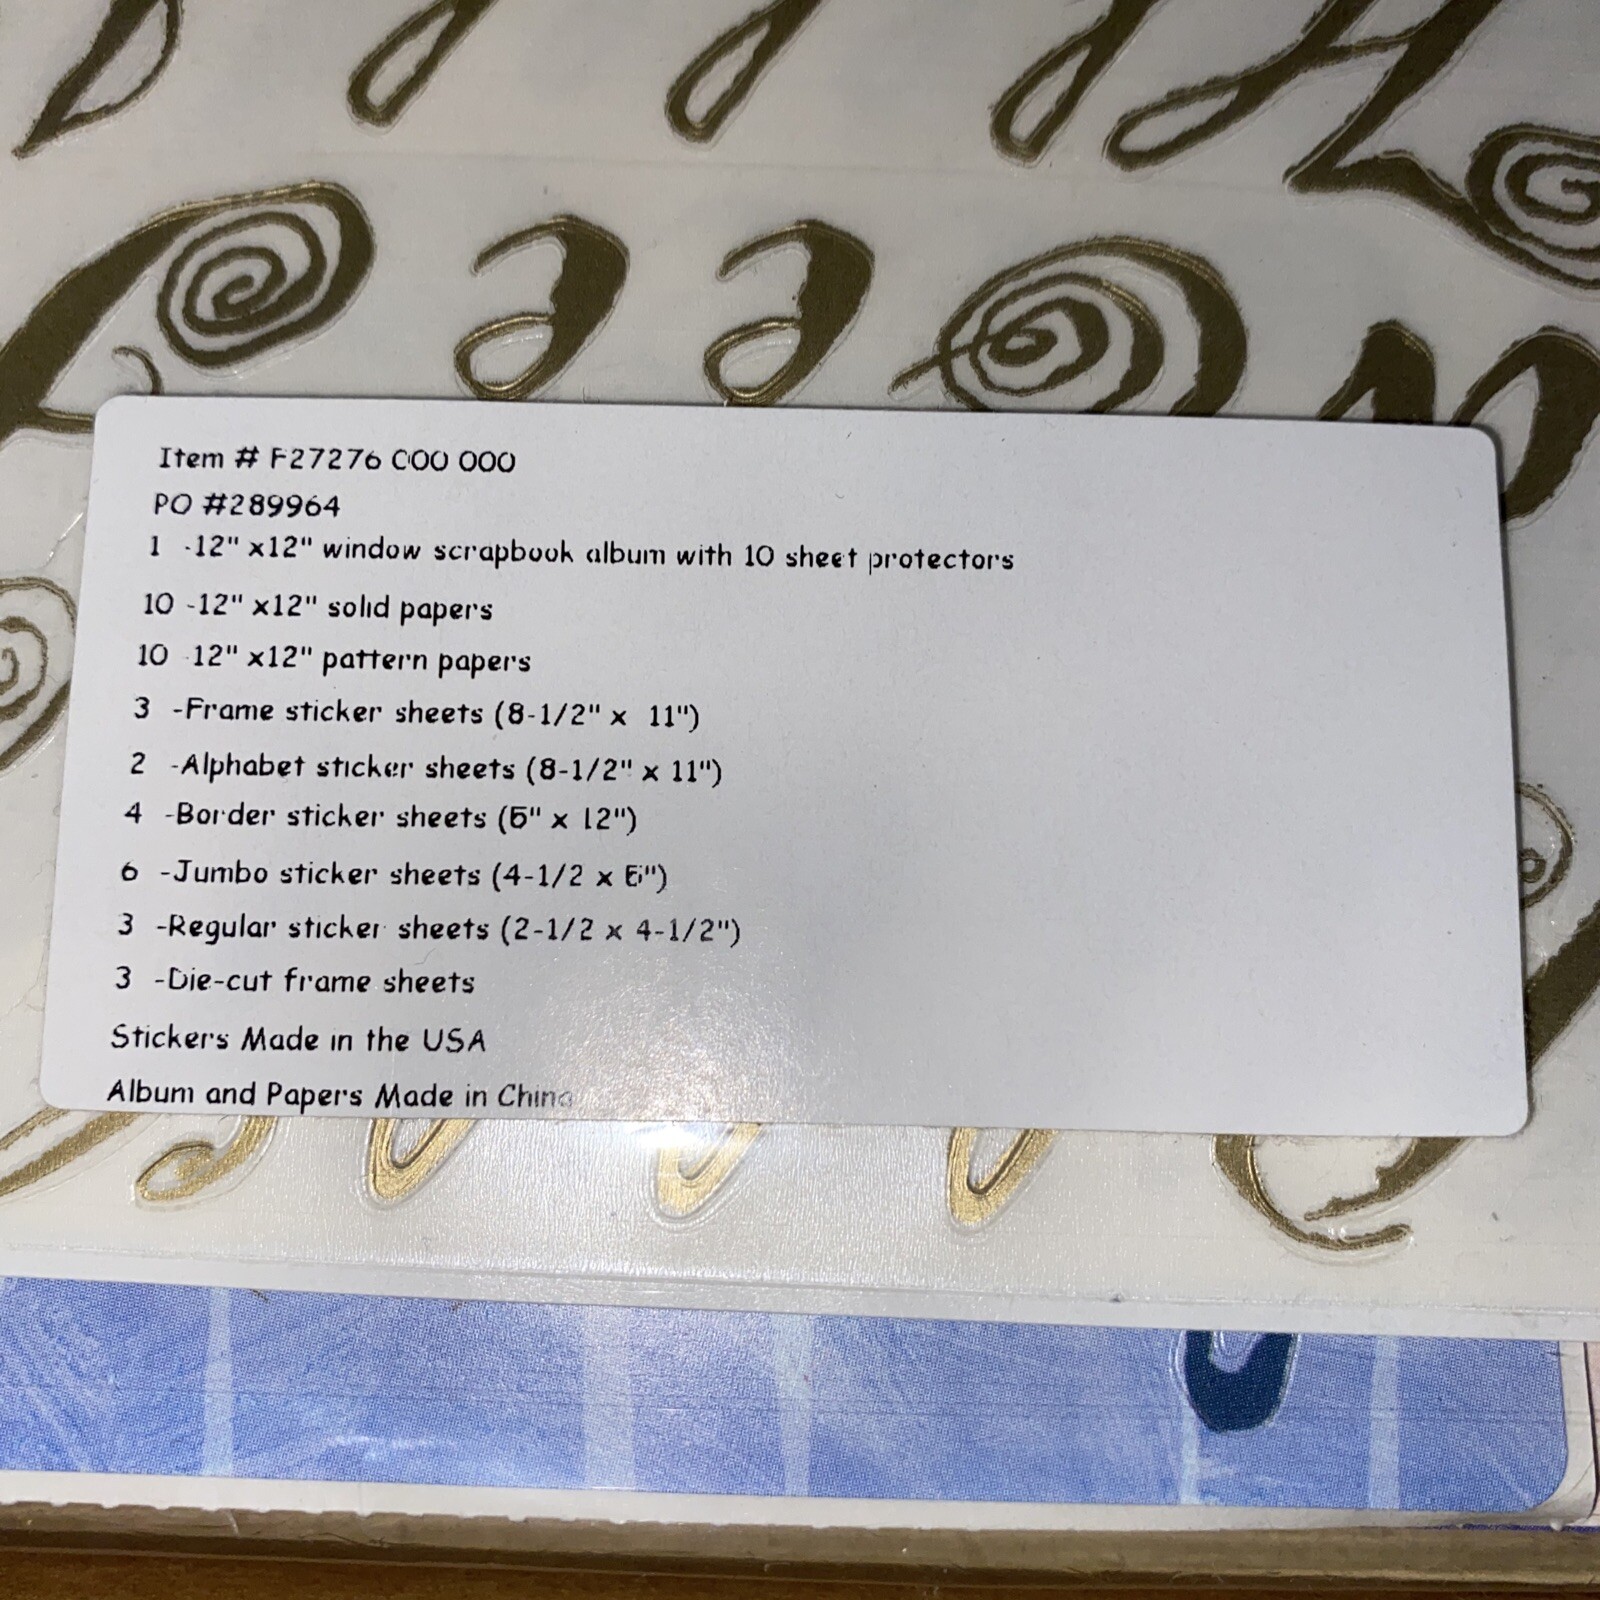 Item # F27276 C00 000
PO #289964
1 -12" x12" window scrapbook album with 10 sheet protectors
10 -12" x12" solid papers
10 -12" x12" pattern papers
3 -Frame sticker sheets (8-1/2" x 11")
2 -Alphabet sticker sheets (8-1/2" x 11")
4 -Border sticker sheets (6" x 12")
6 -Jumbo sticker sheets (4-1/2 x 6")
3 -Regular sticker sheets (2-1/2 x 4-1/2")
3 -Die-cut frame sheets
Stickers Made in the USA
Album and Papers Made in China